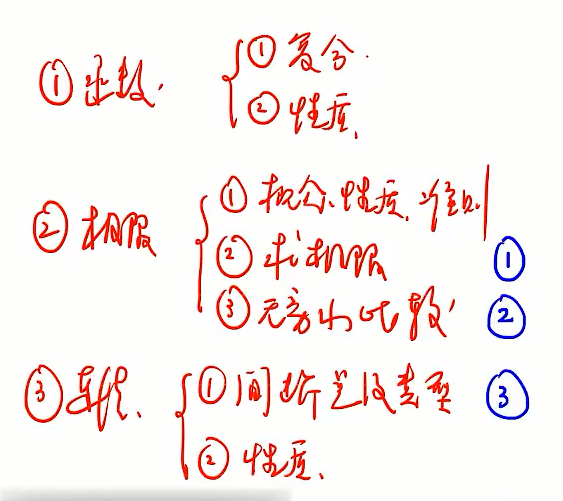 ① 函数. ① 复合.
② 性质.
② 极限 ① 概念、性质、准则
② 求极限 ①
③ 无穷小比较 ②
③ 连续. ① 间断点及类型 ③
② 性质.